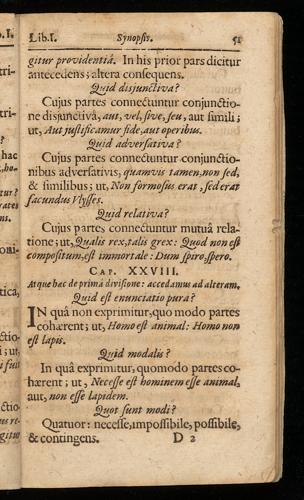 Lib.I. Synopsis. 51
gitur providentiâ. In his prior pars dicitur
antecedens; altera consequens.
Quid disjunctiva?
Cujus partes connectuntur conjunctio-
ne disjunctivâ, aut, vel, sive, seu, aut simili;
ut, Aut justificamur fide, aut operibus.
Quid adversativa?
Cujus partes connectuntur conjunctio-
nibus adversativis, quamvis tamen, non sed,
& similibus; ut, Non formosus erat, sed erat
facundus Vlysses.
Quid relativa?
Cujus partes connectuntur mutuâ rela-
tione; ut, Qualis rex, talis grex: Quod non est
compositum, est immortale: Dum spiro, spero.
CAP. XXVIII.
Atque hac de primâ divisione: accedamus ad alteram.
Quid est enunciatio pura?
IN quâ non exprimitur, quo modo partes
cohærent; ut, Homo est animal: Homo non
est lapis.
Quid modalis?
In quâ exprimitur, quomodo partes co-
hærent; ut, Necesse est hominem esse animal,
aut, non esse lapidem.
Quot sunt modi?
Quatuor: necesse, impossibile, possibile,
& contingens. D 2